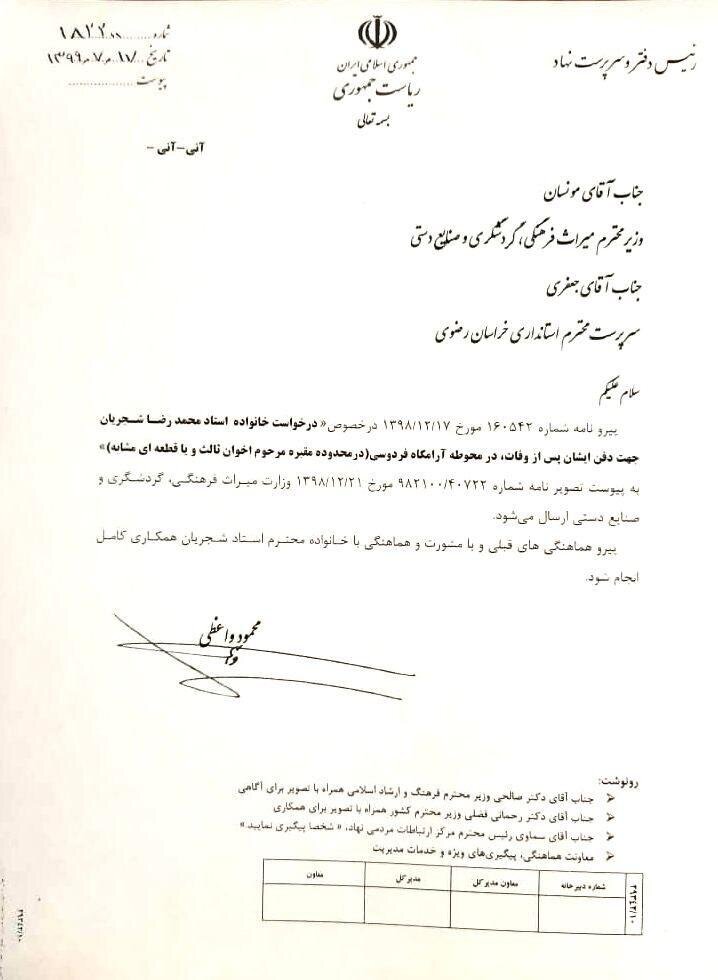 شماره ۱۸۲۲۰۰
تاریخ ۱۳۹۹،۷،۱۷
پیوست
جمهوری اسلامی ایران
ریاست جمهوری
بسمه تعالی
رئیس دفتر و سرپرست نهاد
آنی-آنی -
جناب آقای مونسان
وزیر محترم میراث فرهنگی، گردشگری و صنایع دستی
جناب آقای جعفری
سرپرست محترم استانداری خراسان رضوی
سلام علیکم
پیرو نامه شماره ۱۶۰۵۴۲ مورخ ۱۳۹۸/۱۲/۱۷ درخصوص« درخواست خانواده استاد محمد رضا شجریان
جهت دفن ایشان پس از وفات، در محوطه آرامگاه فردوسی(درمحدوده مقبره مرحوم اخوان ثالث و یا قطعه ای مشابه)»
به پیوست تصویر نامه شماره ۹۸۲۱۰۰/۴۰۷۲۲ مورخ ۱۳۹۸/۱۲/۲۱ وزارت میراث فرهنگی، گردشگری و
صنایع دستی ارسال می‌شود.
پیرو هماهنگی های قبلی و با مشورت و هماهنگی با خانواده محترم استاد شجریان همکاری کامل
انجام شود.
محمود واعظی
رونوشت:
جناب آقای دکتر صالحی وزیر محترم فرهنگ و ارشاد اسلامی همراه با تصویر برای آگاهی
جناب آقای دکتر رحمانی فضلی وزیر محترم کشور همراه با تصویر برای همکاری
جناب آقای سماوی رئیس محترم مرکز ارتباطات مردمی نهاد، « شخصا پیگیری نمایید.»
معاونت هماهنگی، پیگیری‌های ویژه و خدمات مدیریت
شماره دبیرخانه معاون مدیرکل مدیرکل معاون